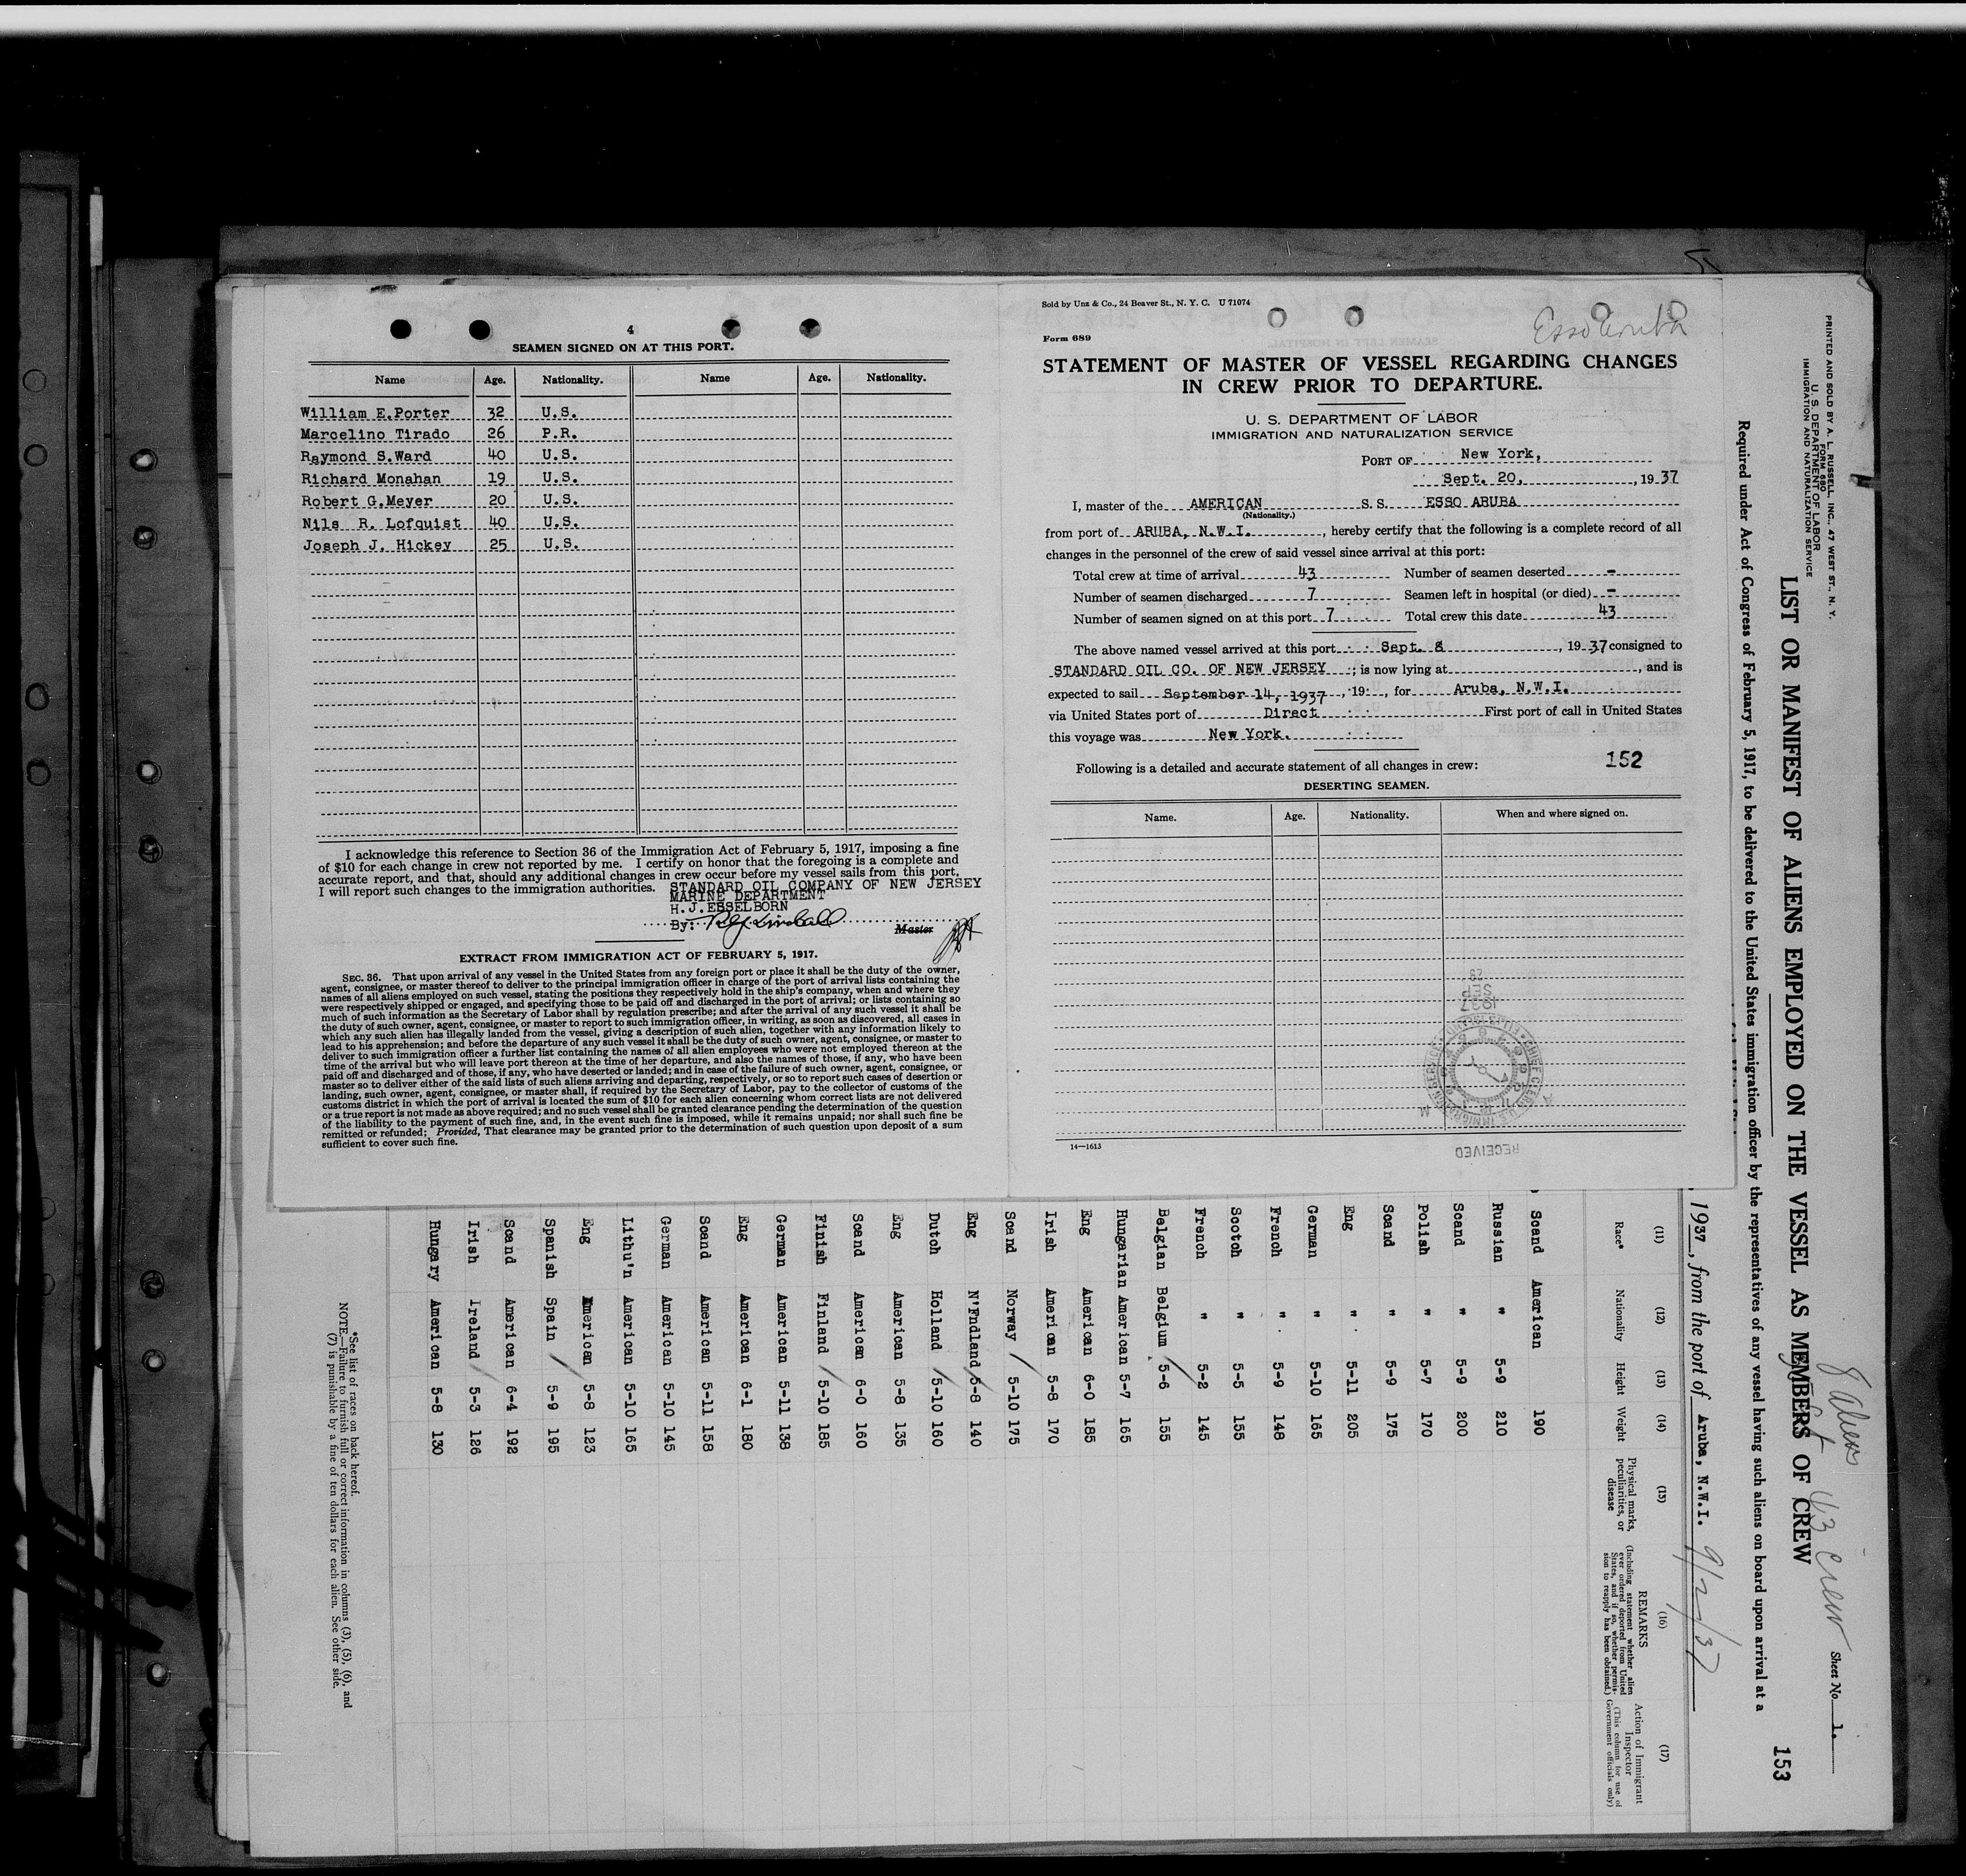 4
SEAMEN SIGNED ON AT THIS PORT.
Name Age. Nationality. Name Age. Nationality.
William E.Porter 32 U.S.
Marcelino Tirado 26 P.R.
Raymond S.Ward 40 U.S.
Richard Monahan 19 U.S.
Robert G.Meyer 20 U.S.
Nils R. Lofquist 40 U.S.
Joseph J. Hickey 25 U.S.
I acknowledge this reference to Section 36 of the Immigration Act of February 5, 1917, imposing a fine
of $10 for each change in crew not reported by me. I certify on honor that the foregoing is a complete and
accurate report, and that, should any additional changes in crew occur before my vessel sails from this port,
I will report such changes to the immigration authorities.
STANDARD OIL COMPANY OF NEW JERSEY
MARINE DEPARTMENT
H.J.ESSELBORN
By:
Master
EXTRACT FROM IMMIGRATION ACT OF FEBRUARY 5, 1917.
SEC. 36. That upon arrival of any vessel in the United States from any foreign port or place it shall be the duty of the owner,
agent, consignee, or master thereof to deliver to the principal immigration officer in charge of the port of arrival lists containing the
names of all aliens employed on such vessel, stating the positions they respectively hold in the ship's company, when and where they
were respectively shipped or engaged, and specifying those to be paid off and discharged in the port of arrival; or lists containing so
much of such information as the Secretary of Labor shall by regulation prescribe; and after the arrival of any such vessel it shall be
the duty of such owner, agent, consignee, or master to report to such immigration officer, in writing, as soon as discovered, all cases in
which any such alien has illegally landed from the vessel, giving a description of such alien, together with any information likely to
lead to his apprehension; and before the departure of any such vessel it shall be the duty of such owner, agent, consignee, or master to
deliver to such immigration officer a further list containing the names of all alien employees who were not employed thereon at the
time of the arrival but who will leave port thereon at the time of her departure, and also the names of those, if any, who have been
paid off and discharged and of those, if any, who have deserted or landed; and in case of the failure of such owner, agent, consignee, or
master so to deliver either of the said lists of such aliens arriving and departing, respectively, or so to report such cases of desertion or
landing, such owner, agent, consignee, or master shall, if required by the Secretary of Labor, pay to the collector of customs of the
customs district in which the port of arrival is located the sum of $10 for each alien concerning whom correct lists are not delivered
or a true report is not made as above required; and no such vessel shall be granted clearance pending the determination of the question
of the liability to the payment of such fine, and, in the event such fine is imposed, while it remains unpaid; nor shall such fine be
remitted or refunded; Provided, That clearance may be granted prior to the determination of such question upon deposit of a sum
sufficient to cover such fine.
Sold by Unz & Co., 24 Beaver St., N. Y. C. U 71074
Esso Aruba
Form 689
STATEMENT OF MASTER OF VESSEL REGARDING CHANGES
IN CREW PRIOR TO DEPARTURE.
U. S. DEPARTMENT OF LABOR
IMMIGRATION AND NATURALIZATION SERVICE
PORT OF New York,
Sept. 20, , 1937
I, master of the AMERICAN S. S. ESSO ARUBA
(Nationality.)
from port of ARUBA, N.W.I. , hereby certify that the following is a complete record of all
changes in the personnel of the crew of said vessel since arrival at this port:
Total crew at time of arrival 43 Number of seamen deserted -
Number of seamen discharged 7 Seamen left in hospital (or died) -
Number of seamen signed on at this port 7 Total crew this date 43
The above named vessel arrived at this port Sept. 8 , 1937 consigned to
STANDARD OIL CO. OF NEW JERSEY ; is now lying at , and is
expected to sail September 14, 1937 , 19 , for Aruba, N.W.I.
via United States port of Direct First port of call in United States
this voyage was New York.
Following is a detailed and accurate statement of all changes in crew: 152
DESERTING SEAMEN.
Name. Age. Nationality. When and where signed on.
1937
SEP
28
RECEIVED
14—1613
PRINTED AND SOLD BY A. L. RUSSELL, INC., 47 WEST ST., N. Y.
FORM 680
U. S. DEPARTMENT OF LABOR
IMMIGRATION AND NATURALIZATION SERVICE
8 Aliens 43 crew
Sheet No. 1.
LIST OR MANIFEST OF ALIENS EMPLOYED ON THE VESSEL AS MEMBERS OF CREW
153
Required under Act of Congress of February 5, 1917, to be delivered to the United States immigration officer by the representatives of any vessel having such aliens on board upon arrival at a
1937, from the port of Aruba, N.W.I. 9/2/37
(11) (12) (13) (14) (15) (16) (17)
Race* Nationality Height Weight Physical marks, peculiarities, or disease REMARKS (Including statement whether alien ever ordered deported from United States, and if so, whether permission to reapply has been obtained.) Action of Immigrant Inspector (This column for use of Government officials only)
Scand American 190
Russian " 5-9 210
Scand " 5-9 200
Polish " 5-7 170
Scand " 5-9 175
Eng " 5-11 205
German " 5-10 165
French " 5-9 148
Scotch " 5-5 155
French " 5-2 145
Belgian Belgium 5-6 155
Hungarian American 5-7 165
Eng American 6-0 185
Irish American 5-8 170
Scand Norway 5-10 175
Eng N'Fndland 5-8 140
Dutch Holland 5-10 160
Eng American 5-8 135
Scand American 6-0 160
Finish Finland 5-10 185
German American 5-11 138
Eng American 6-1 180
Scand American 5-11 158
German American 5-10 145
Lithu'n American 5-10 165
Eng American 5-8 123
Spanish Spain 5-9 195
Scand American 6-4 192
Irish Ireland 5-3 126
Hungary American 5-8 130
*See list of races on back hereof.
NOTE.—Failure to furnish full or correct information in columns (3), (5), (6), and
(7) is punishable by a fine of ten dollars for each alien. See other side.